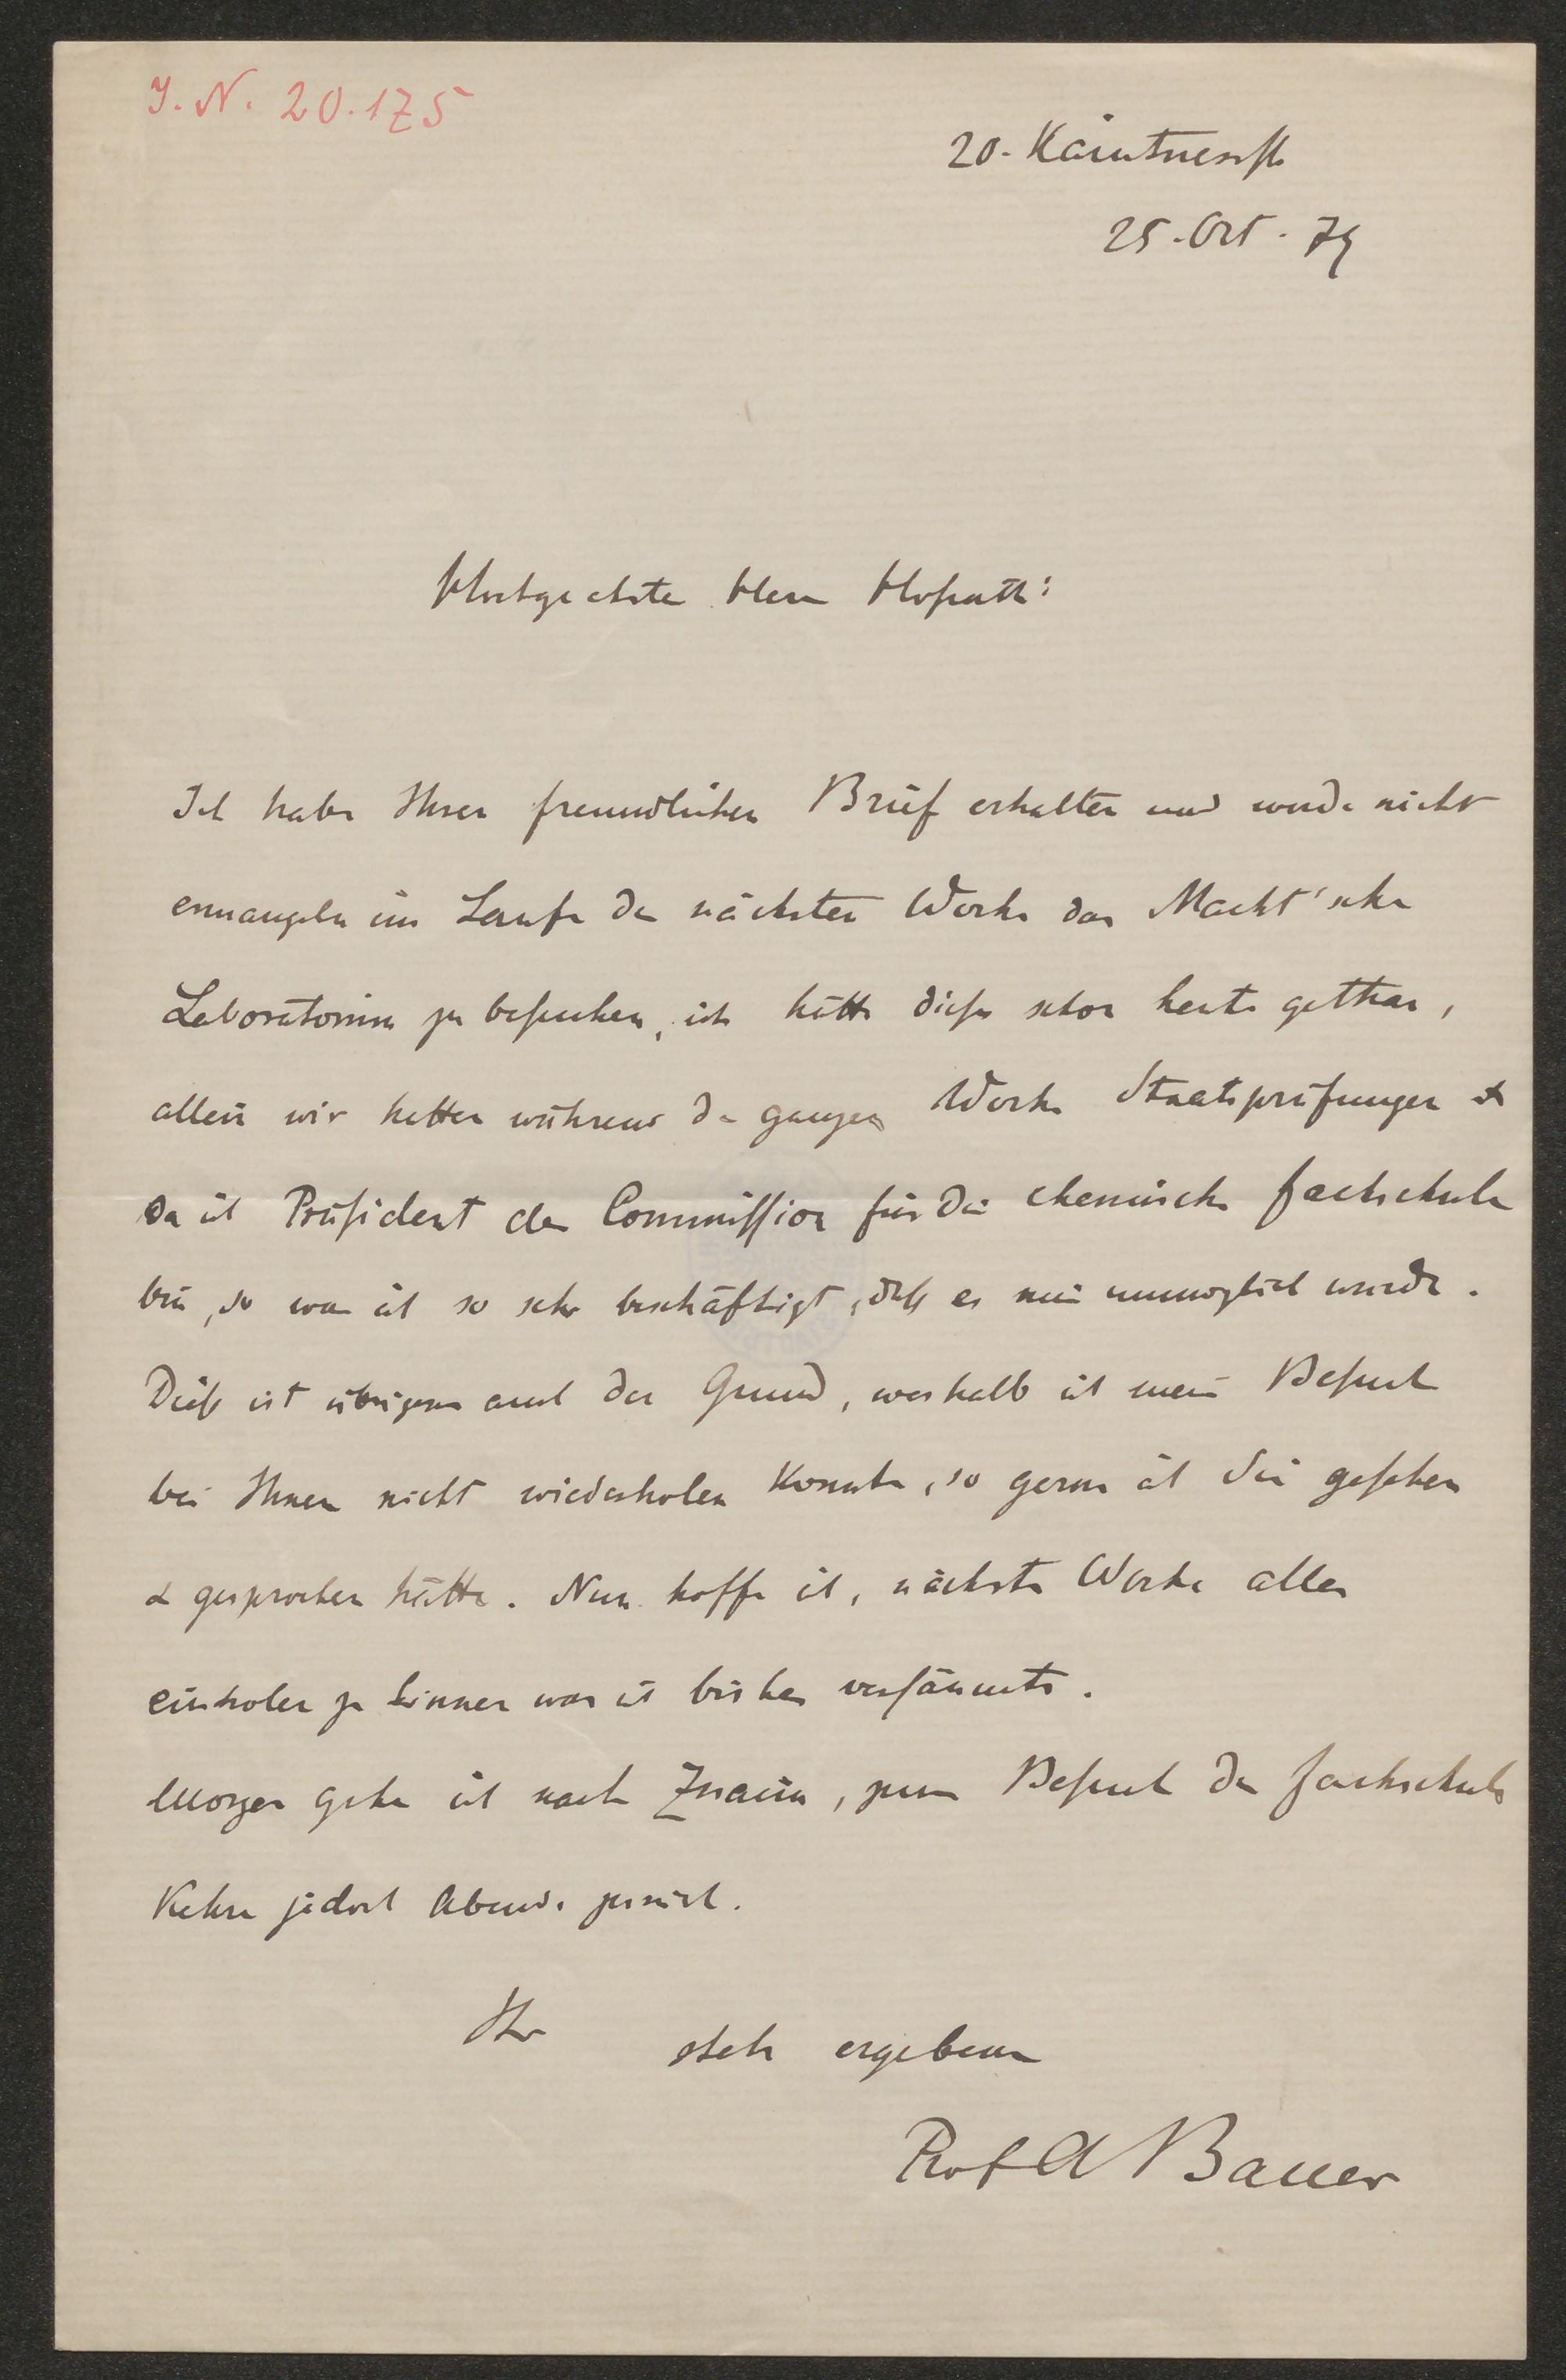 J. N. 20.175
20. Kärntnerstr
25. Oct. 79
Hochgeehrter Herr Hofrath!
Ich habe Ihren freundlichen Brief erhalten und werde nicht
ermangeln im Laufe der nächsten Woche das Macht'sche
Laboratorium zu besuchen, ich hätte dieß schon heute gethan,
allein wir hatten während der ganzen Woche Staatsprüfungen &
da ich Präsident der Commission für die chemische Fachschule
bin, so war ich so sehr beschäftigt, daß es mir unmöglich wurde.
Dieß ist übrigens auch der Grund, weshalb ich meinen Besuch
bei Ihnen nicht wiederholen konnte, so gerne ich Sie gesehen
& gesprochen hätte. Nun hoffe ich, nächste Woche alles
einholen zu können was ich bisher versäumte.
Morgen gehe ich nach Znaim, zum Besuch der Fachschule
Kehre jedoch Abends zurück.
Ihr stets ergebener
Prof A Bauer